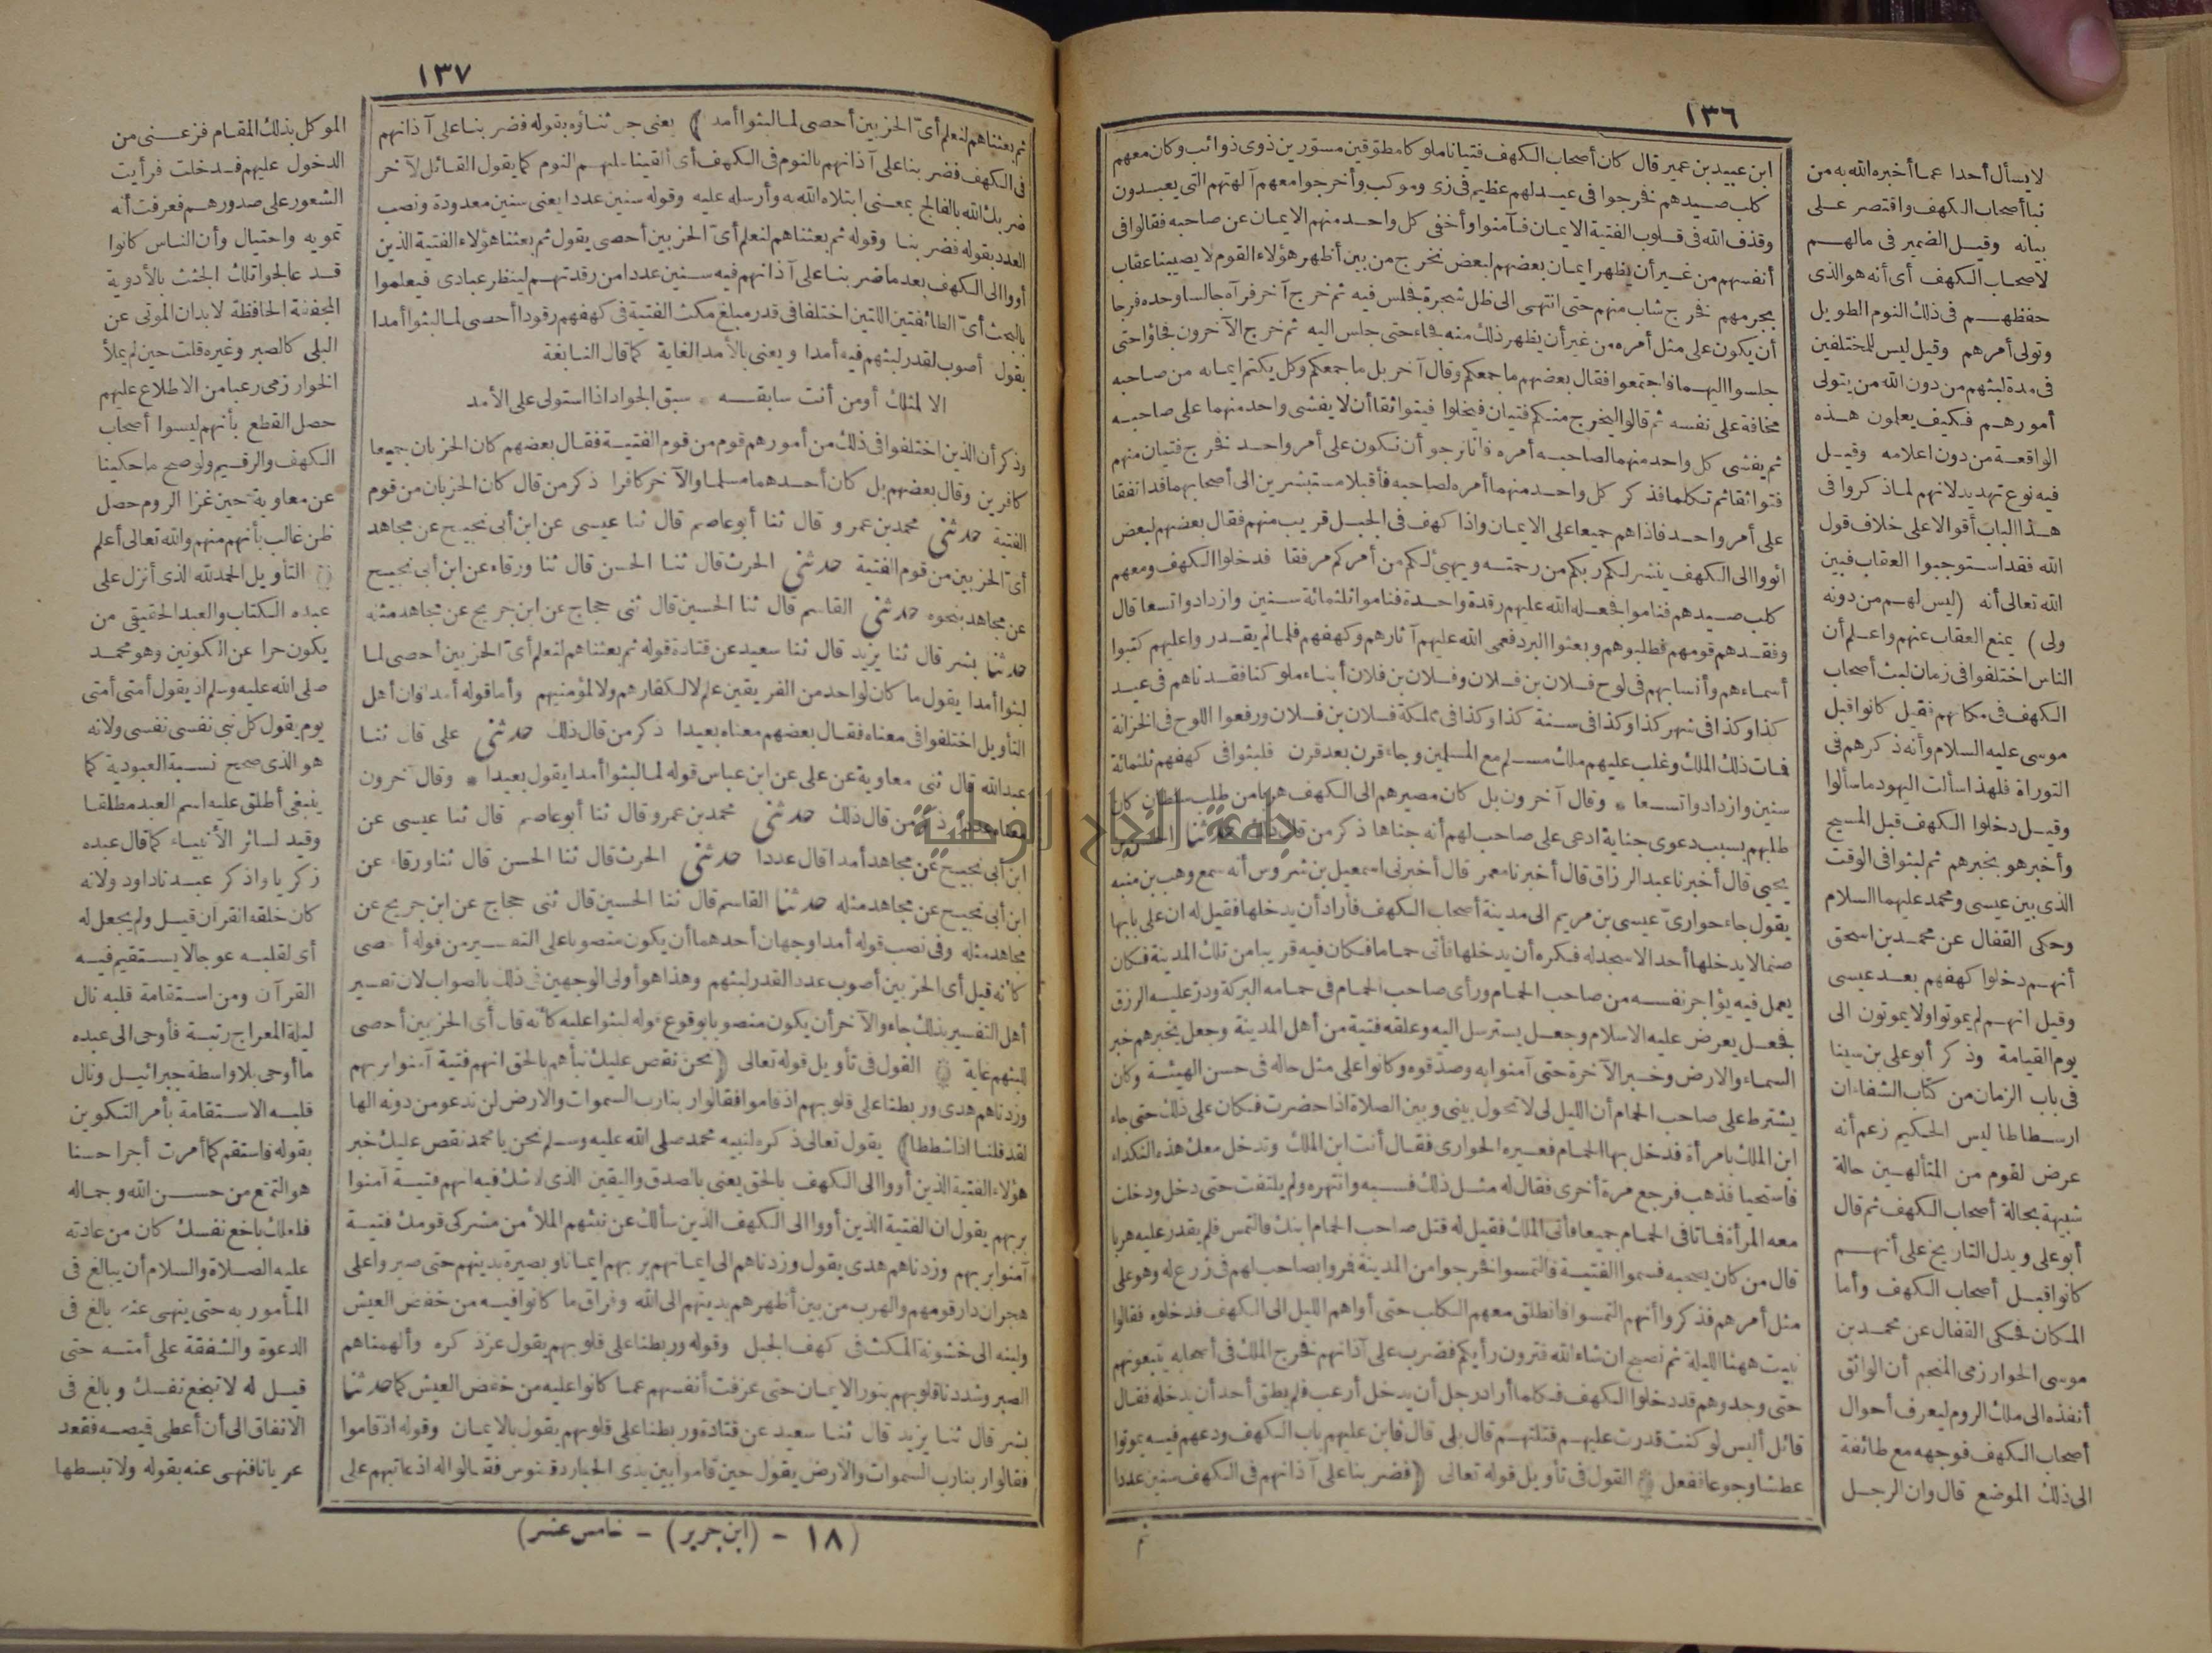 ١٣٦
ابن عبيد بن عمير قال كان أصحاب الكهف فتيانا ملوكا مطوّقين مسوّرين ذوى ذوائب وكان معهم
كلب صيدهم فخرجوا فى عيد لهم عظيم فى زى وموكب وأخرجوا معهم آلهتهم التى يعبدون
وقذف الله فى قلوب الفتية الايمان فآمنوا وأخفى كل واحد منهم الايمان عن صاحبه فقالوا فى
أنفسهم من غير أن يظهر ايمان بعضهم لبعض نخرج من بين أظهر هؤلاء القوم لا يصيبنا عقاب
بجرمهم فخرج شاب منهم حتى انتهى الى ظل شجرة فجلس فيه ثم خرج آخر فرآه جالسا وحده فرجا
أن يكون على مثل أمره من غير أن يظهر ذلك منه فجاء حتى جلس اليه ثم خرج الآخرون فجاؤا حتى
جلسوا اليهما فاجتمعوا فقال بعضهم ما جمعكم وقال آخر بل ما جمعكم وكل يكتم ايمانه من صاحبه
مخافة على نفسه ثم قالوا ليخرج منكم فتيان فيخلوا فيتواثقا أن لا يفشى واحد منهما على صاحبه
ثم يفشى كل واحد منهما لصاحبه أمره فانا نرجو أن نكون على أمر واحد فخرج فتيان منهم
فتواثقا ثم تكلما فذكر كل واحد منهما أمره لصاحبه فأقبلا مستبشرين الى أصحابهما قد اتفقا
على أمر واحد فاذا هم جميعا على الايمان واذا كهف فى الجبل قريب منهم فقال بعضهم لبعض
ائووا الى الكهف ينشر لكم ربكم من رحمته ويهيئ لكم من أمركم مرفقا فدخلوا الكهف ومعهم
كلب صيدهم فناموا فجعله الله عليهم رقدة واحدة فناموا ثلثمائة سنين وازدادوا تسعا قال
وفقدهم قومهم فطلبوهم وبعثوا البرد فعمى الله عليهم آثارهم وكهفهم فلما لم يقدروا عليهم كتبوا
أسماءهم وأنسابهم فى لوح فلان بن فلان وفلان بن فلان أبناء ملوكنا فقدناهم فى عيد
كذا وكذا فى شهر كذا وكذا فى سنة كذا وكذا فى مملكة فلان بن فلان ورفعوا اللوح فى الخزانة
فمات ذلك الملك وغلب عليهم ملك مسلم مع المسلمين وجاء قرن بعد قرن فلبثوا فى كهفهم ثلثمائة
سنين وازدادوا تسعا * وقال آخرون بل كان مصيرهم الى الكهف هربا من طلب سلطان كان
طلبهم بسبب دعوى جناية ادعى على صاحب لهم أنه جناها ذكر من قال ذلك حدثنا الحسن بن
يحيى قال أخبرنا عبد الرزاق قال أخبرنا معمر قال أخبرنى اسمعيل بن شروس أنه سمع وهب بن منبه
يقول جاء حوارىّ عيسى بن مريم الى مدينة أصحاب الكهف فأراد أن يدخلها فقيل له ان على بابها
صنما لا يدخلها أحد الا سجد له فكره أن يدخلها فأتى حماما فكان فيه قريبا من تلك المدينة فكان
يعمل فيه يؤاجر نفسه من صاحب الحمام ورأى صاحب الحمام فى حمامه البركة ودرّ عليه الرزق
فجعل يعرض عليه الاسلام وجعل يسترسل اليه وعلقه فتية من أهل المدينة وجعل يخبرهم خبر
السماء والارض وخبر الآخرة حتى آمنوا به وصدّقوه وكانوا على مثل حاله فى حسن الهيئة وكان
يشترط على صاحب الحمام أن الليل لى لا تحول بينى وبين الصلاة اذا حضرت فكان على ذلك حتى جاء
ابن الملك بامرأة فدخل بها الحمام فعيره الحوارى فقال أنت ابن الملك وتدخل معك هذه النكداء
فاستحيا فذهب فرجع مرة أخرى فقال له مثل ذلك فسبه وانتهره ولم يلتفت حتى دخل ودخلت
معه المرأة فماتا فى الحمام جميعا فأتى الملك فقيل له قتل صاحب الحمام ابنك فالتمس فلم يقدر عليه هربا
قال من كان يصحبه فسموا الفتية فالتمسوا فخرجوا من المدينة فمروا بصاحب لهم فى زرع له وهو على
مثل أمرهم فذكروا أنهم التمسوا فانطلق معهم الكلب حتى أواهم الليل الى الكهف فدخلوه فقالوا
نبيت ههنا الليلة ثم نصبح ان شاء الله فترون رأيكم فضرب على آذانهم فخرج الملك فى أصحابه يتبعونهم
حتى وجدوهم قد دخلوا الكهف فكلما أراد رجل أن يدخل أرعب فلم يطق أحد أن يدخله فقال
قائل أليس لو كنت قدرت عليهم قتلتهم قال بلى قال فابن عليهم باب الكهف ودعهم فيه يموتوا
عطشا وجوعا ففعل القول فى تأويل قوله تعالى (فضربنا على آذانهم فى الكهف سنين عددا
ثم
لا يسأل أحدا عما أخبره الله به من
نبا أصحاب الكهف واقتصر على
بيانه وقيل الضمير فى مالهم
لاصحاب الكهف أى أنه هو الذى
حفظهم فى ذلك النوم الطويل
وتولى أمرهم وقيل ليس للمختلفين
فى مدة لبثهم من دون الله من يتولى
أمورهم فكيف يعلمون هذه
الواقعة من دون اعلامه وقيل
فيه نوع تهديد لانهم لما ذكروا فى
هذا الباب أقوالا على خلاف قول
الله فقد استوجبوا العقاب فبين
الله تعالى أنه (ليس لهم من دونه
ولى) يمنع العقاب عنهم واعلم أن
الناس اختلفوا فى زمان لبث أصحاب
الكهف فى مكانهم فقيل كانوا قبل
موسى عليه السلام وأنه ذكرهم فى
التوراة فلهذا سألت اليهود ما سألوا
وقيل دخلوا الكهف قبل المسيح
وأخبر هو بخبرهم ثم لبثوا فى الوقت
الذى بين عيسى ومحمد عليهما السلام
وحكى القفال عن محمد بن اسحق
أنهم دخلوا كهفهم بعد عيسى
وقيل انهم لم يموتوا ولا يموتون الى
يوم القيامة وذكر أبو على بن سينا
فى باب الزمان من كتاب الشفاء ان
ارسطاطاليس الحكيم زعم أنه
عرض لقوم من المتألهين حالة
شبيهة بحالة أصحاب الكهف ثم قال
أبو على ويدل التاريخ على أنهم
كانوا قبل أصحاب الكهف وأما
المكان فحكى القفال عن محمد بن
موسى الخوارزمى المنجم أن الواثق
أنفذه الى ملك الروم ليعرف أحوال
أصحاب الكهف فوجهه مع طائفة
الى ذلك الموضع قال وان الرجل
١٣٧
ثم بعثناهم لنعلم أىّ الحزبين أحصى لما لبثوا أمدا) يعنى جل ثناؤه بقوله فضربنا على آذانهم
فى الكهف فضربنا على آذانهم بالنوم فى الكهف أى ألقينا عليهم النوم كما يقول القائل لآخر
ضربك الله بالفالج بمعنى ابتلاه الله به وأرسله عليه وقوله سنين عددا يعنى سنين معدودة ونصب
العدد بقوله فضربنا وقوله ثم بعثناهم لنعلم أىّ الحزبين أحصى يقول ثم بعثنا هؤلاء الفتية الذين
أووا الى الكهف بعد ما ضربنا على آذانهم فيه سنين عددا من رقدتهم لينظر عبادى فيعلموا
بالبحث أىّ الطائفتين اللتين اختلفا فى قدر مبلغ مكث الفتية فى كهفهم رقودا أحصى لما لبثوا أمدا
يقول أصوب لقدر لبثهم فيه أمدا ويعنى بالأمد الغاية كما قال النابغة
الا لمثلك أو من أنت سابقه * سبق الجواد اذا استولى على الأمد
وذكر أن الذين اختلفوا فى ذلك من أمورهم قوم من قوم الفتية فقال بعضهم كان الحزبان جميعا
كافرين وقال بعضهم بل كان أحدهما مسلما والآخر كافرا ذكر من قال كان الحزبان من قوم
الفتية حدثنى محمد بن عمرو قال ثنا أبو عاصم قال ثنا عيسى عن ابن أبى نجيح عن مجاهد
أىّ الحزبين من قوم الفتية حدثنى الحرث قال ثنا الحسن قال ثنا ورقاء عن ابن أبى نجيح
عن مجاهد بنحوه حدثنى القاسم قال ثنا الحسين قال ثنى حجاج عن ابن جريج عن مجاهد مثله
حدثنا بشر قال ثنا يزيد قال ثنا سعيد عن قتادة قوله ثم بعثناهم لنعلم أىّ الحزبين أحصى لما
لبثوا أمدا يقول ما كان لواحد من الفريقين علم لا لكفارهم ولا لمؤمنيهم وأما قوله أمدا فان أهل
التأويل اختلفوا فى معناه فقال بعضهم معناه بعيدا ذكر من قال ذلك حدثنى على قال ثنا
عبد الله قال ثنى معاوية عن على عن ابن عباس قوله لما لبثوا أمدا يقول بعيدا * وقال آخرون
معناه عددا ذكر من قال ذلك حدثنى محمد بن عمرو قال ثنا أبو عاصم قال ثنا عيسى عن
ابن أبى نجيح عن مجاهد أمدا قال عددا حدثنى الحرث قال ثنا الحسن قال ثنا ورقاء عن
ابن أبى نجيح عن مجاهد مثله حدثنا القاسم قال ثنا الحسين قال ثنى حجاج عن ابن جريج عن
مجاهد مثله وفى نصب قوله أمدا وجهان أحدهما أن يكون منصوبا على التفسير من قوله أحصى
كأنه قيل أى الحزبين أصوب عددا لقدر لبثهم وهذا هو أولى الوجهين فى ذلك بالصواب لان تفسير
أهل التفسير بذلك جاء والآخر أن يكون منصوبا بوقوع قوله لبثوا عليه كأنه قال أى الحزبين أحصى
للبثهم غاية القول فى تأويل قوله تعالى (نحن نقص عليك نبأهم بالحق انهم فتية آمنوا بربهم
وزدناهم هدى وربطنا على قلوبهم اذ قاموا فقالوا ربنا رب السموات والارض لن ندعو من دونه الها
لقد قلنا اذا شططا) يقول تعالى ذكره لنبيه محمد صلى الله عليه وسلم نحن يا محمد نقص عليك خبر
هؤلاء الفتية الذين أووا الى الكهف بالحق يعنى بالصدق واليقين الذى لا شك فيه انهم فتية آمنوا
بربهم يقول ان الفتية الذين أووا الى الكهف الذين سألك عن نبئهم الملأ من مشركى قومك فتية
آمنوا بربهم وزدناهم هدى يقول وزدناهم الى ايمانهم بربهم ايمانا وبصيرة بدينهم حتى صبروا على
هجران دار قومهم والهرب من بين أظهرهم بدينهم الى الله وفراق ما كانوا فيه من خفض العيش
ولينه الى خشونة المكث فى كهف الجبل وقوله وربطنا على قلوبهم يقول عز ذكره وألهمناهم
الصبر وشددنا قلوبهم بنور الايمان حتى عزفت أنفسهم عما كانوا عليه من خفض العيش كما حدثنا
بشر قال ثنا يزيد قال ثنا سعيد عن قتادة وربطنا على قلوبهم يقول بالايمان وقوله اذ قاموا
فقالوا ربنا رب السموات والارض يقول حين قاموا بين يدى الجبار دقينوس فقالوا له اذ عاتبهم على
(١٨ - (ابن جرير) - خامس عشر)
الموكل بذلك المقام فزعنى من
الدخول عليهم فدخلت فرأيت
الشعور على صدورهم فعرفت أنه
تمويه واحتيال وأن الناس كانوا
قد عالجوا تلك الجثث بالأدوية
المجففة الحافظة لابدان الموتى عن
البلى كالصبر وغيره قلت حين لم يملأ
الخوارزمى رعبا من الاطلاع عليهم
حصل القطع بأنهم ليسوا أصحاب
الكهف والرقيم ولو صح ما حكينا
عن معاوية حين غزا الروم حصل
ظن غالب بأنهم منهم والله تعالى أعلم
التأويل الحمد لله الذى أنزل على
عبده الكتاب والعبد الحقيقى من
يكون حرا عن الكونين وهو محمد
صلى الله عليه وسلم اذ يقول أمتى أمتى
يوم يقول كل نبى نفسى نفسى ولانه
هو الذى صحح نسبة العبودية كما
ينبغى أطلق عليه اسم العبد مطلقا
وقيد لسائر الأنبياء كما قال عبده
زكريا واذكر عبدنا داود ولانه
كان خلقه القرآن قيل ولم يجعل له
أى لقلبه عوجا لا يستقيم فيه
القرآن ومن استقامة قلبه نال
ليلة المعراج رتبة فأوحى الى عبده
ما أوحى بلا واسطة جبرائيل ونال
قلبه الاستقامة بأمر التكوين
بقوله فاستقم كما أمرت أجرا حسنا
هو التمتع من حسن الله وجماله
فلعلك باخع نفسك كان من عادته
عليه الصلاة والسلام أن يبالغ فى
المأمور به حتى ينهى عنه بالغ فى
الدعوة والشفقة على أمته حتى
قيل له لا تبخع نفسك وبالغ فى
الانفاق الى أن أعطى قميصه فقعد
عريانا فنهى عنه بقوله ولا تبسطها
جامعة النجاح الوطنية